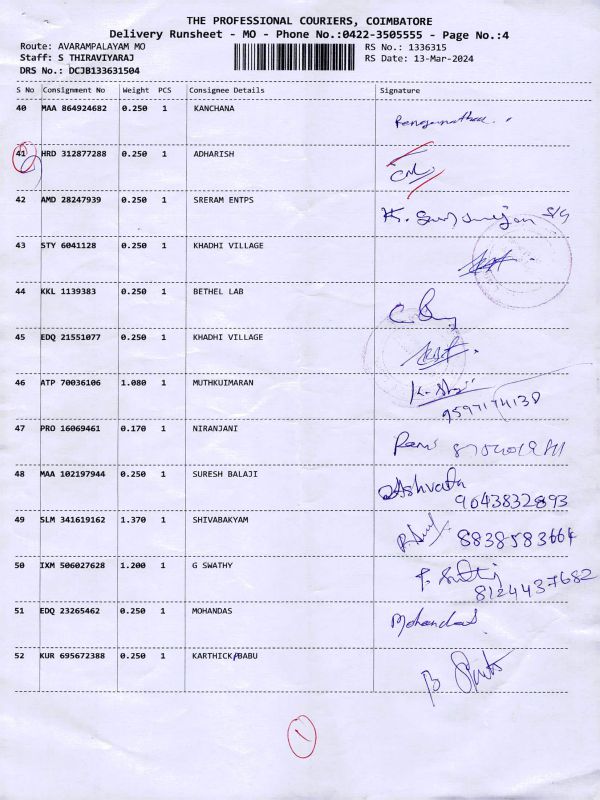 THE PROFESSIONAL COURIERS, COIMBATORE
Delivery Runsheet - MO - Phone No.:0422-3505555 - Page No.:4
Route: AVARAMPALAYAM MO RS No.: 1336315
Staff: S THIRAVIYARAJ RS Date: 13-Mar-2024
DRS No.: DCJB133631504
S No Consignment No Weight PCS Consignee Details Signature
40 MAA 864924682 0.250 1 KANCHANA
41 HRD 312877288 0.250 1 ADHARISH
42 AMD 28247939 0.250 1 SRERAM ENTPS
43 STY 6041128 0.250 1 KHADHI VILLAGE
44 KKL 1139383 0.250 1 BETHEL LAB
45 EDQ 21551077 0.250 1 KHADHI VILLAGE
46 ATP 70036106 1.080 1 MUTHKUIMARAN
9597174138
47 PRO 16069461 0.170 1 NIRANJANI
48 MAA 102197944 0.250 1 SURESH BALAJI Ashvata
9043832893
49 SLM 341619162 1.370 1 SHIVABAKYAM 8838583664
50 IXM 506027628 1.200 1 G SWATHY
8124437682
51 EDQ 23265462 0.250 1 MOHANDAS Mohandas
52 KUR 695672388 0.250 1 KARTHICK BABU
1